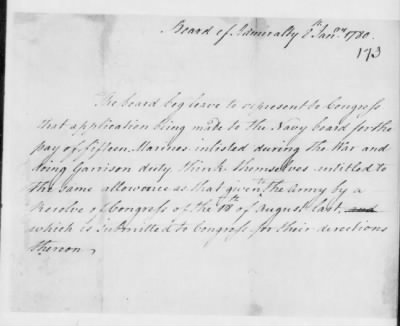 Board of Admiralty 8th Janry 1780.
173
The board beg leave to represent to Congress
that application being made to the Navy board for the
pay of fifteen Marines inlisted during the War and
doing Garrison duty, think themselves intitled to
the same allowance as that given to the Army by a
Resolve of Congress of the 18th of August last, and
which is submitted to Congress for their directions
thereon,